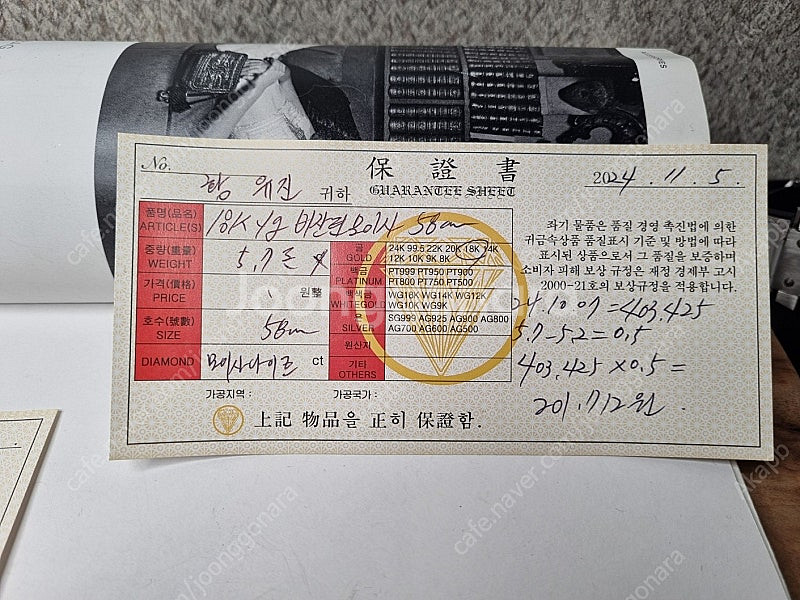 No.
保 證 書
2024. 11. 5.
귀하
GUARANTEE SHEET
품명(品名)
ARTICLE(S)
18K 58cm
중량(重量)
WEIGHT
5.7돈
가격(價格)
PRICE
원整
호수(號數)
SIZE
58cm
DIAMOND
모이사나이트 ct
금
GOLD
24K 99.5 22K 20K 18K 14K
12K 10K 9K 8K
백금
PLATINUM
PT999 PT950 PT900
PT800 PT750 PT500
백색금
WHITEGOLD
WG18K WG14K WG12K
WG10K WG9K
은
SILVER
SG999 AG925 AG900 AG800
AG700 AG600 AG500
원산지
기타
OTHERS
좌기 물품은 품질 경영 촉진법에 의한
귀금속상품 품질표시 기준 및 방법에 따라
표시된 상품으로서 그 품질을 보증하며
소비자 피해 보상 규정은 재정 경제부 고시
2000-21호의 보상규정을 적용합니다.
24.10.07 = 403.425
5.7-5.2 = 0.5
403,425 × 0.5 =
201.712원.
가공지역 :
가공국가 :
上記 物品을 正히 保證함.
Joonggonara
cafe.naver.com/joonggonara